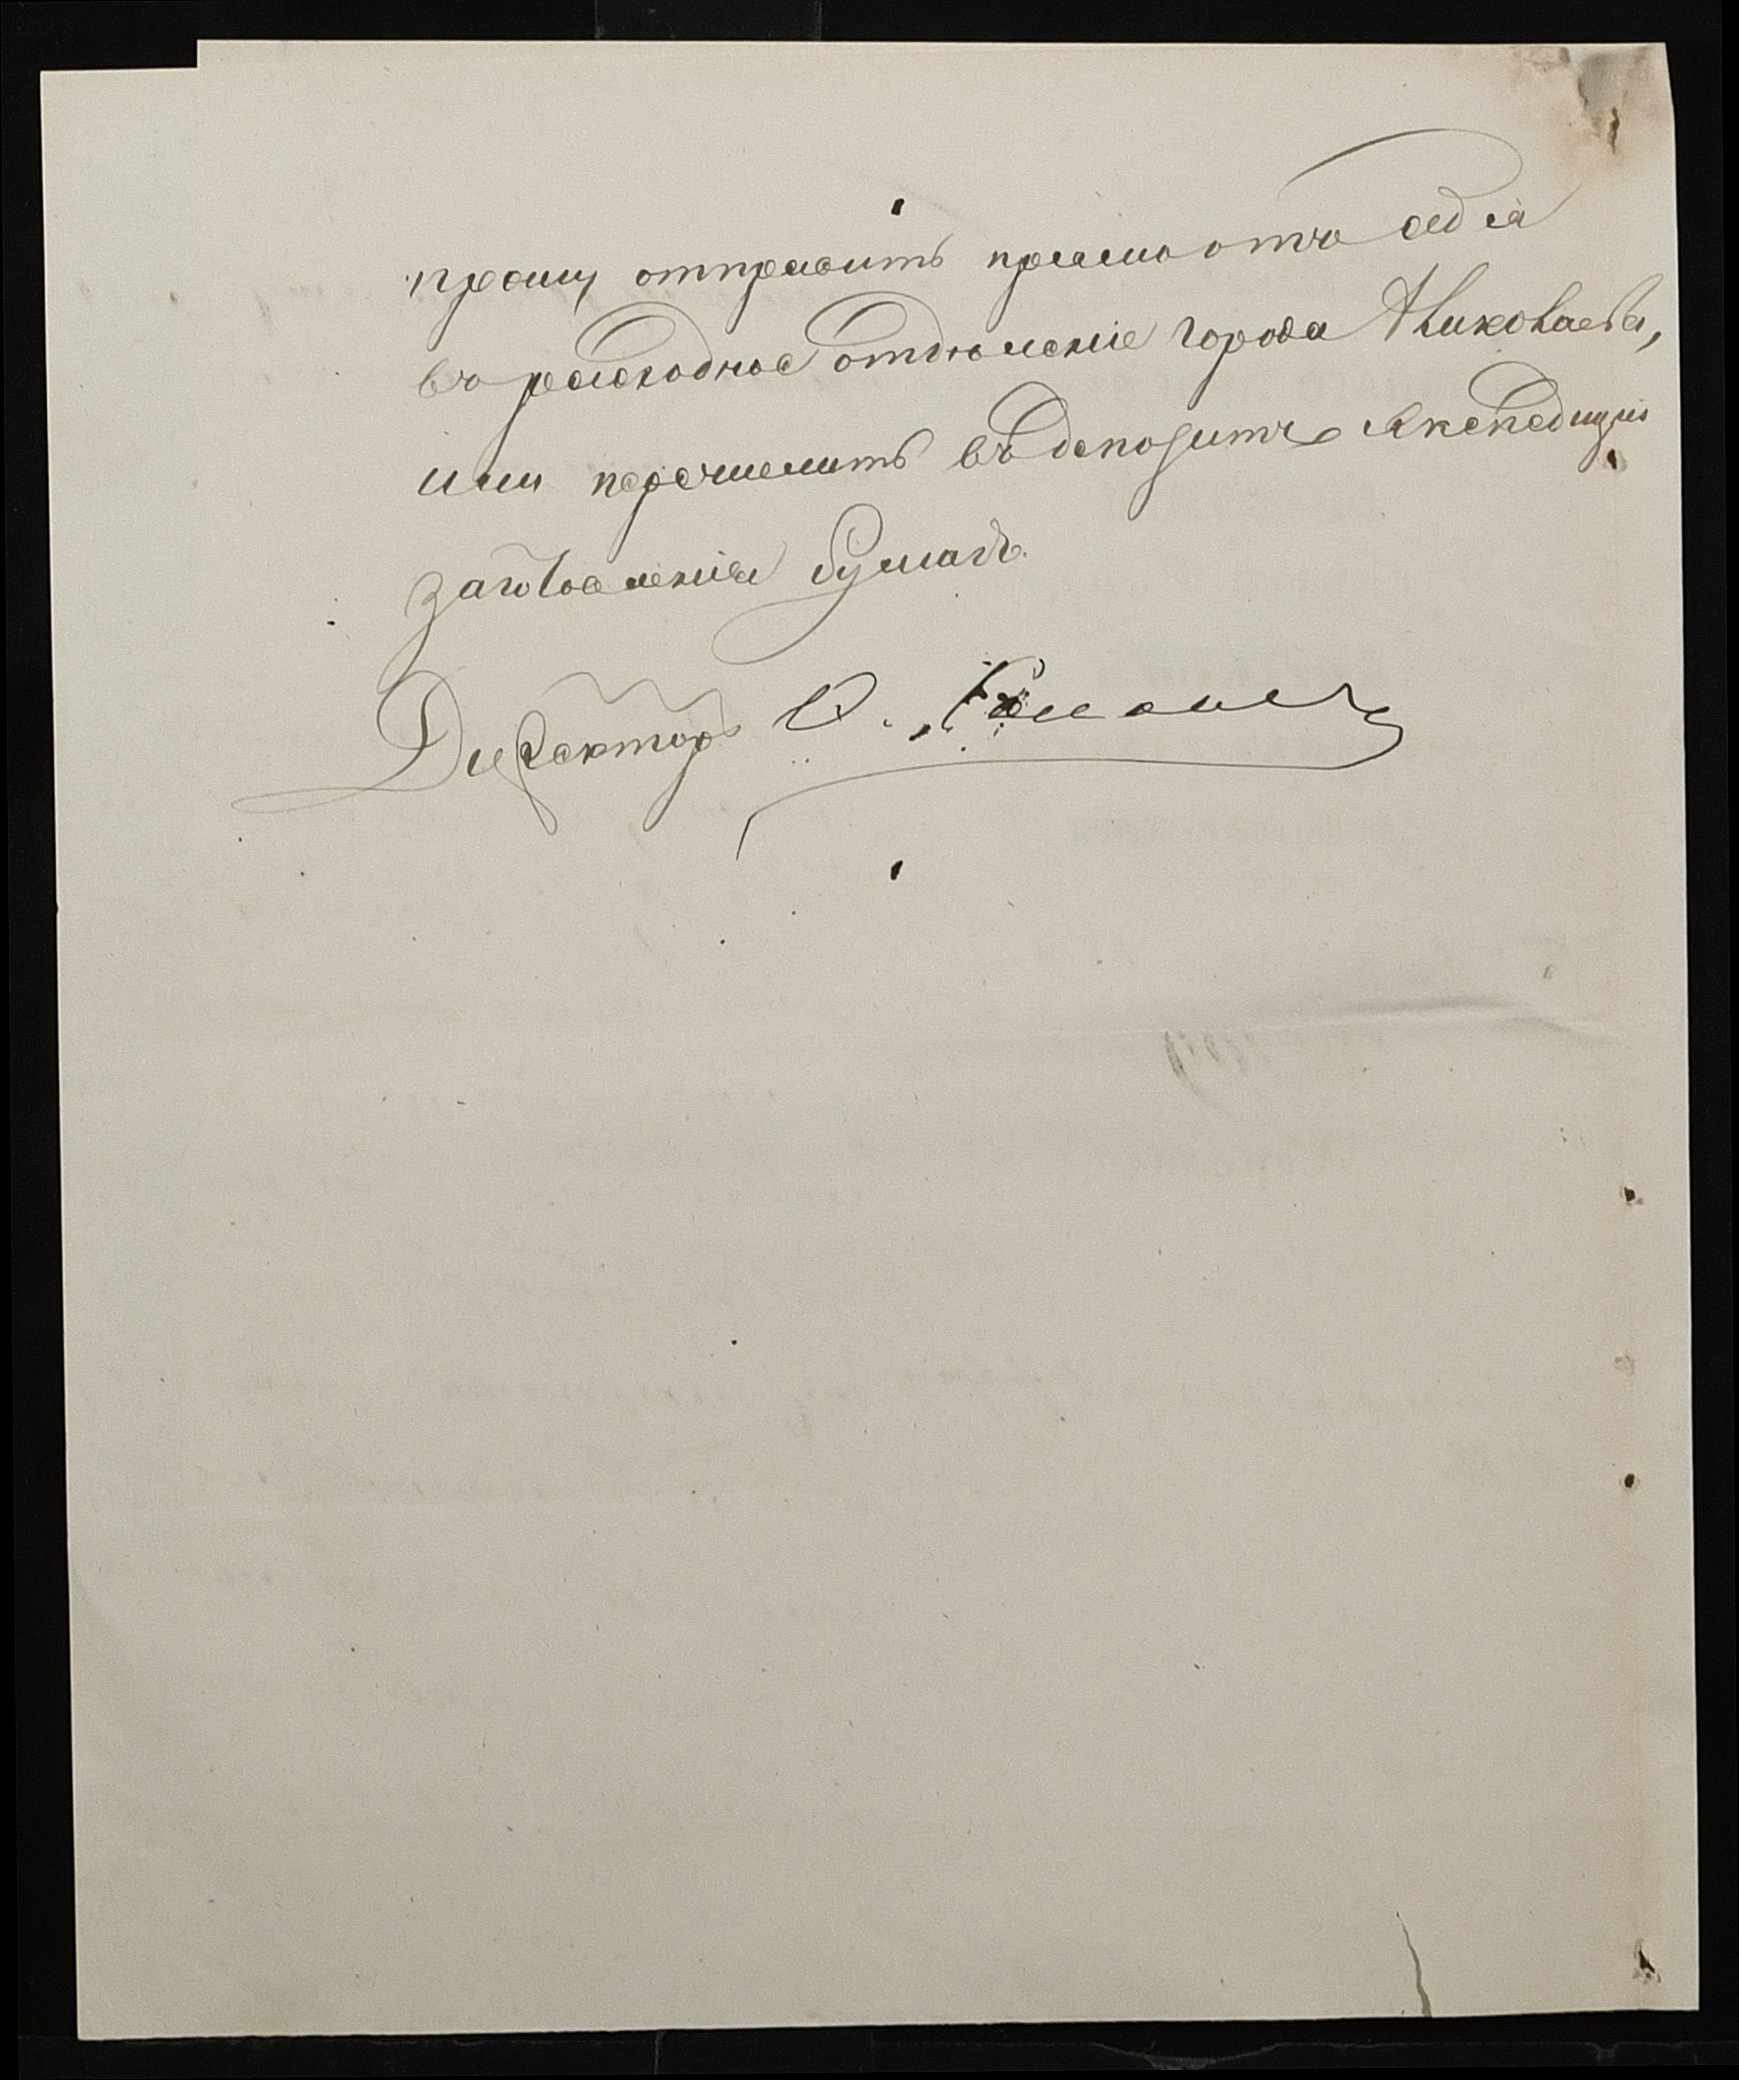 прошу отправить прямо отъ себя
въ расходное отдѣленіе города Николаева,
или перечислить въ депозитъ Экспедиціи
заготовленія бумагъ.
Директоръ